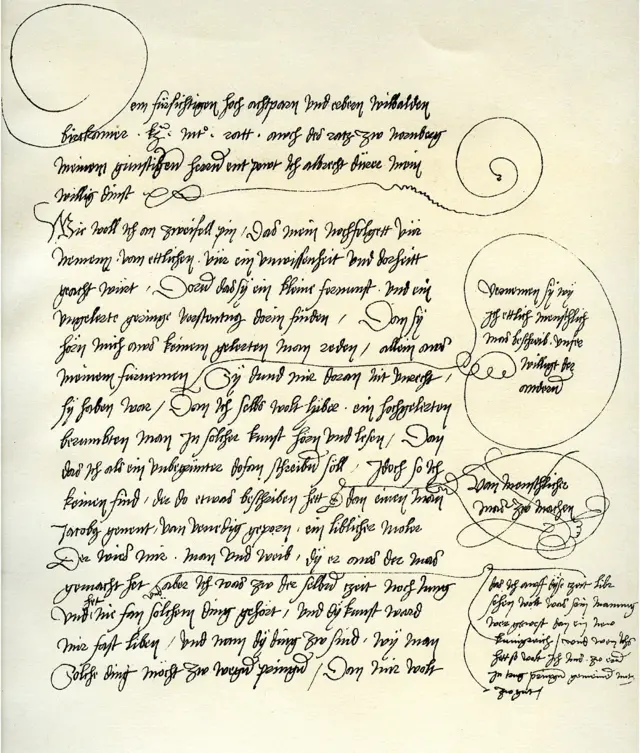 em fürsichtigen hoch achtparn und erbern wilbalden
birckamer . k. mt. ratt . auch des ratz zw nornberg
meinem günstigen herren ent pewt Ich albrecht dürer mein
willig dinst
Wie woll ich an zweifell pin / Das mein nochfolgett vür
nemenn . van ettlichen . vür ein unwissenheit und dorheitt
geacht wirt / Dorum das sy ein kleine fornunft . und ein
ungelerte geringe verstentnus dorin finden / Dan sy
hörn mich aws keinem gelerten man reden / allein aws
meinem fürnemen / Sy dund mir doran nit unrecht /
sy haben war / Dan ich selbs wolt lieber . ein hochgelerten
berumbten man In solcher kunst hörn und lesen / Dan
das ich als ein unbegrünter dofan schreiben söll / Idoch so ich
keinen find / der do etwas beschriben hett / dan einen man
Jacobus genent / van venedig geporn . ein liblicher moler
Der wies mir . man und weib / dy er aws der mas
gemacht het / aber ich was zw der selben tzeit noch Jung
und het nie fan solchem ding gehört / und dy kunst ward
mir fast liben / und nam dy ding zw sind / wy man
Solche ding möcht zw wegen pringen / Dan mir wolt
Vernemen sy wy
Ich ettlich menschlich
mas beschrib .
willigt der
andern
Van menschlicher
mas zw machen
das ich awff dise tzeit libr
sehen wolt was sein mainung
wer gewest dan ein new
kunigreich / und wen ichs
hett so wolt ich
In druck pringen gemeinem nutz
zw gut